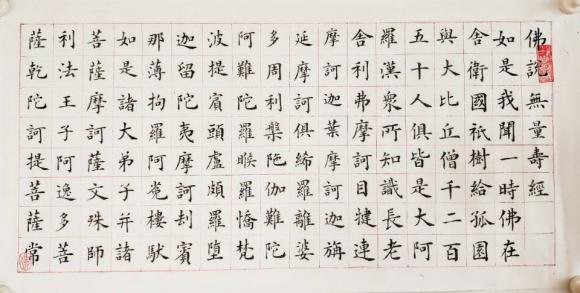 佛說無量壽經
如是我聞一時佛在
舍衛國祇樹給孤園
與大比丘僧千二百
五十人俱皆是大阿
羅漢眾所知識長老
舍利弗摩訶目犍連
摩訶迦葉摩訶迦旃
延摩訶俱絺羅離婆
多周利槃陁伽難陀
阿難陀羅睺羅憍梵
波提賓頭盧頗羅墮
迦留陀夷摩訶刦賓
那薄拘羅阿㝹樓馱
如是諸大弟子并諸
菩薩摩訶薩文殊師
利法王子阿逸多菩
薩乾陀訶提菩薩常